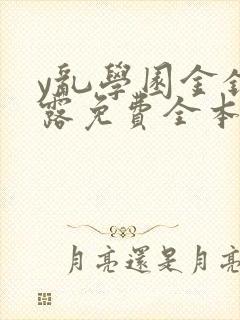 y亂學園金銀
露免費全本
月亮還是月亮